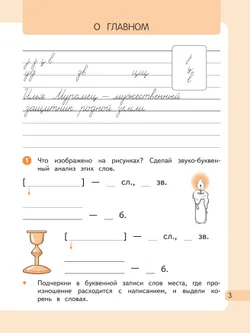 О ГЛАВНОМ
Илья Муромец – мужественный
защитник родной земли.
1 Что изображено на рисунках? Сделай звуко-буквен-
ный анализ этих слов.
[ ] — сл., зв.
— б.
[ ] — сл., зв.
— б.
Подчеркни в буквенной записи слов места, где про-
изношение расходится с написанием, и выдели ко-
рень в словах.
3